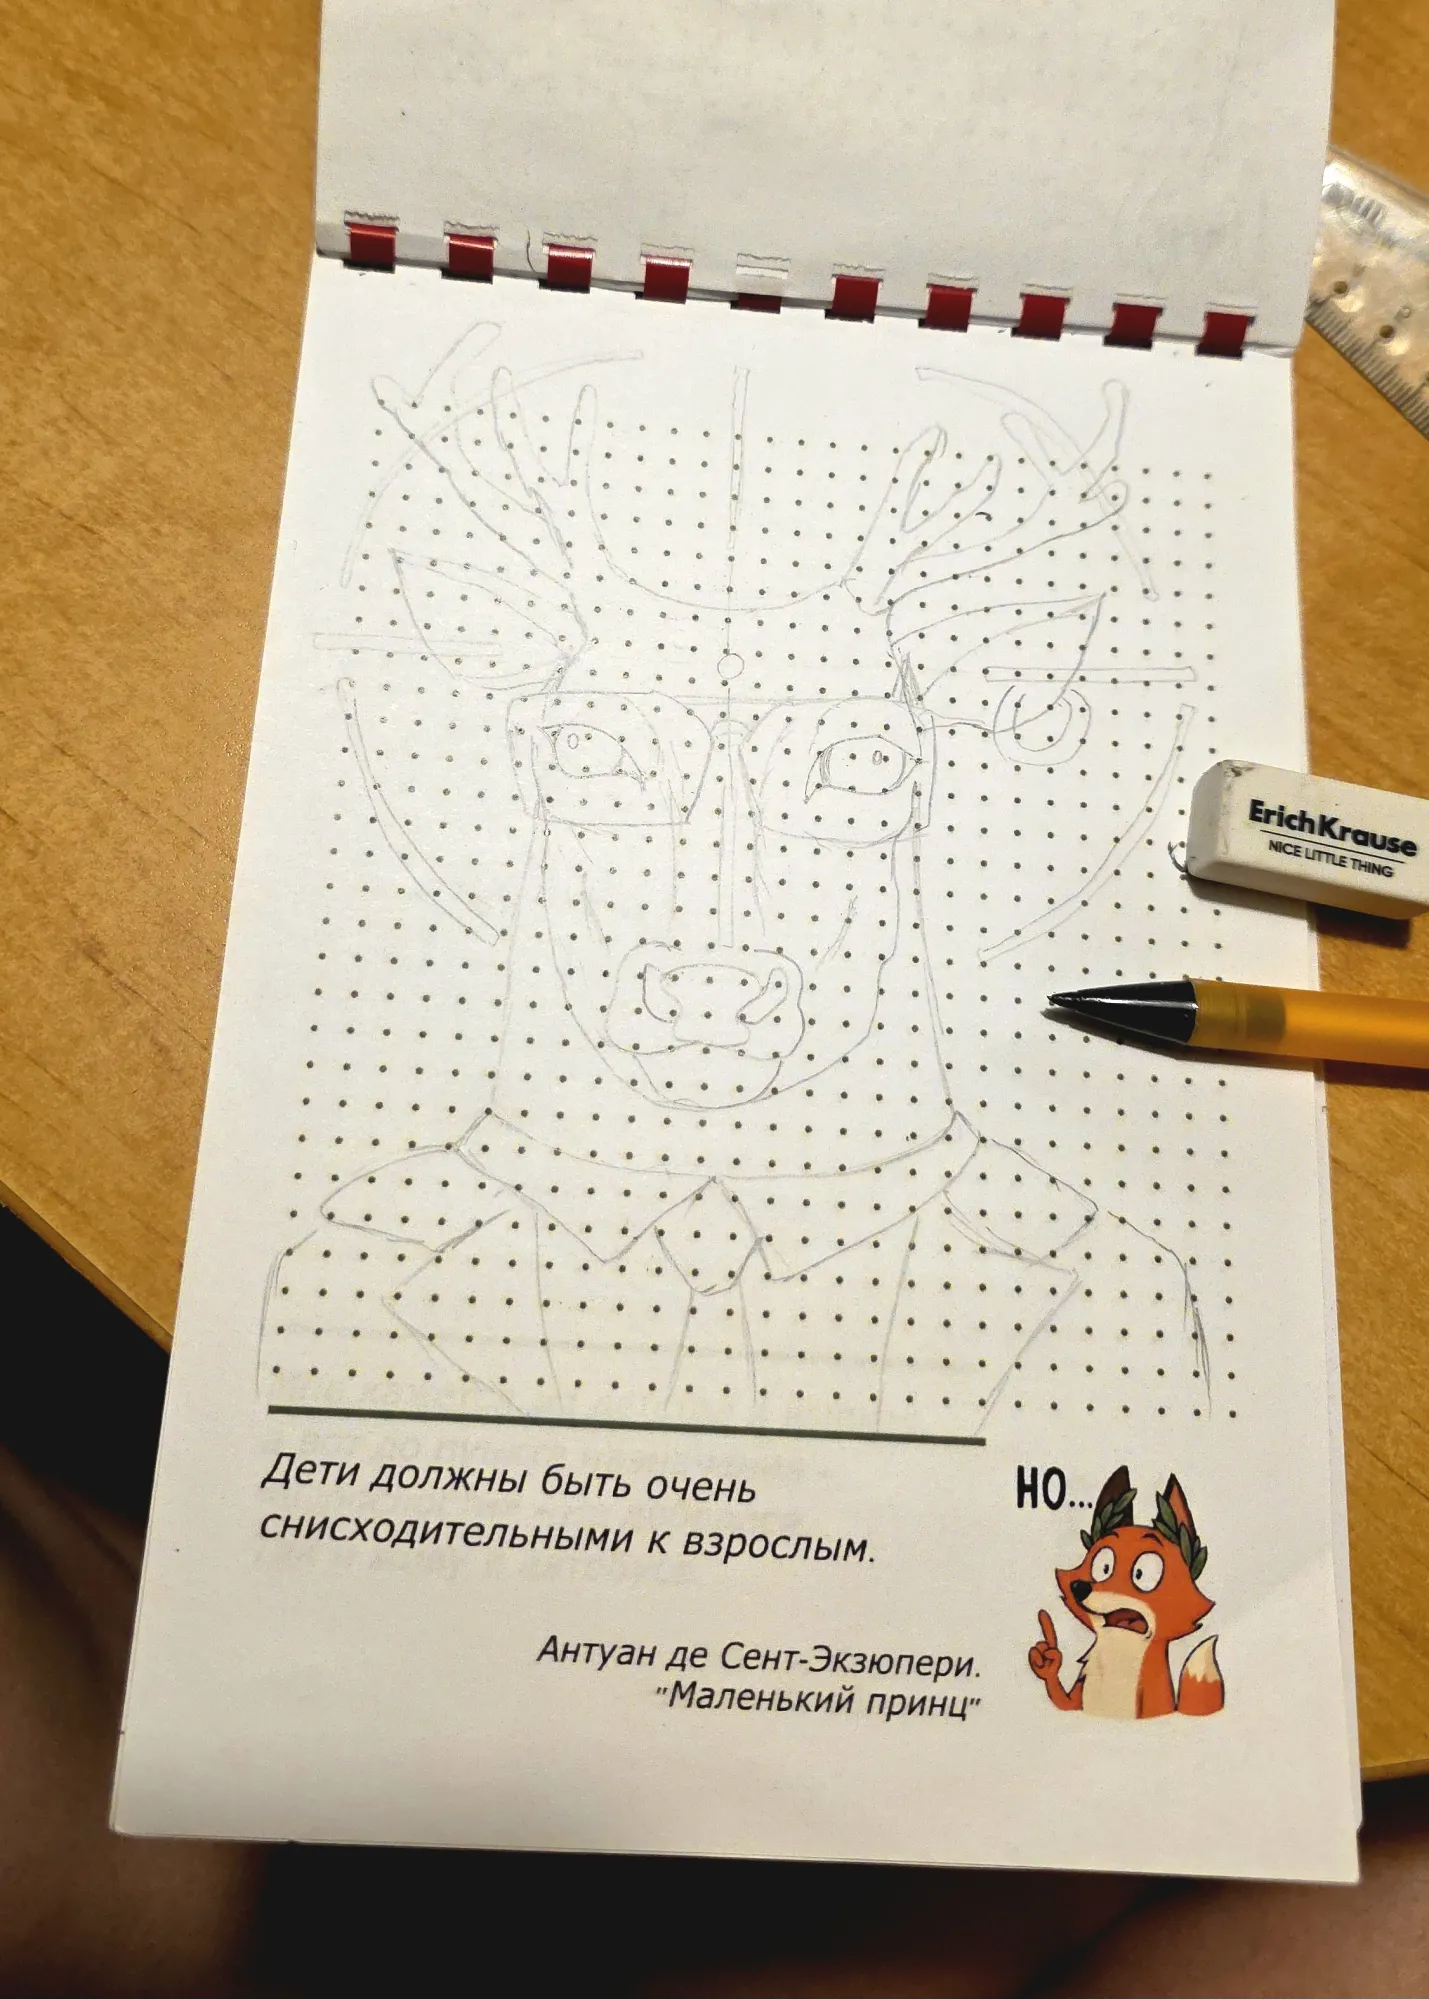 ErichKrause
NICE LITTLE THING
Дети должны быть очень
снисходительными к взрослым.
НО...
Антуан де Сент-Экзюпери.
"Маленький принц"